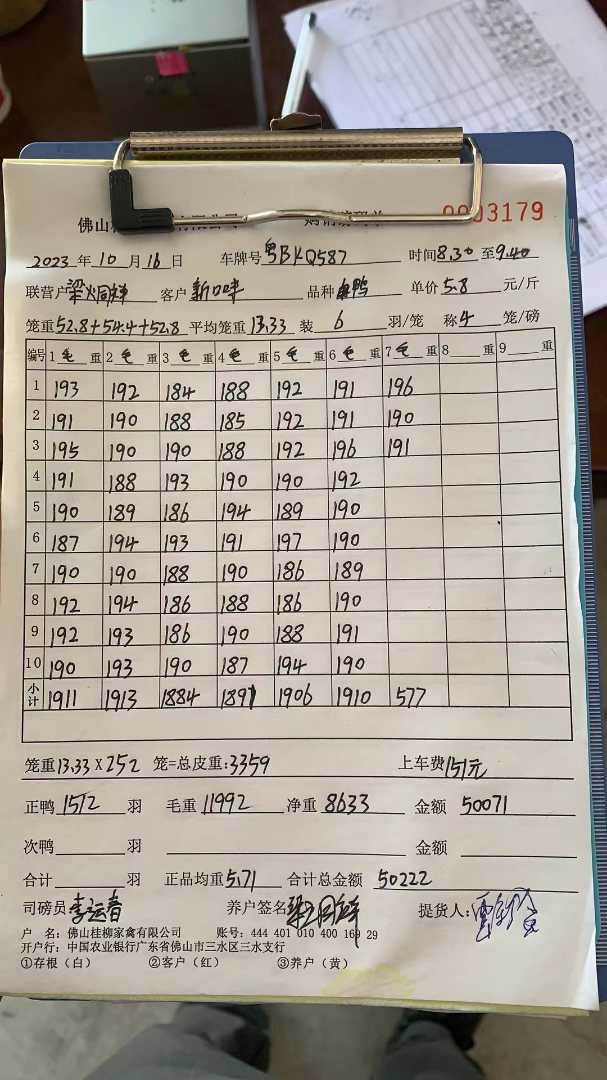 佛山 有限公司 购销磅码单 0003179
2023 年 10 月 16 日 车牌号 粤BKQ587 时间 8.30 至 9.40
联营户 客户 新口味 品种 鸭 单价 5.8 元/斤
笼重 52.8+54.4+52.8 平均笼重 13.33 装 6 羽/笼 称 4 笼/磅
编号 1 毛 重 2 毛 重 3 毛 重 4 毛 重 5 毛 重 6 毛 重 7 毛 重 8 重 9 重
1 193 192 184 188 192 191 196
2 191 190 188 185 192 191 190
3 195 190 190 188 192 196 191
4 191 188 193 190 190 192
5 190 189 186 194 189 190
6 187 194 193 191 197 190
7 190 190 188 190 186 189
8 192 194 186 188 186 190
9 192 193 186 190 188 191
10 190 193 190 187 194 190
小计 1911 1913 1884 1891 1906 1910 577
笼重 13.33 X 252 笼=总皮重:3359 上车费 151元
正鸭 1512 羽 毛重 11992 净重 8633 金额 50071
次鸭 羽 金额
合计 羽 正品均重 5.71 合计总金额 50222
司磅员 李运春 养户签名 提货人:
户 名: 佛山桂柳家禽有限公司 账号: 444 401 010 400 169 29
开户行: 中国农业银行广东省佛山市三水区三水支行
①存根（白） ②客户（红） ③养户（黄）